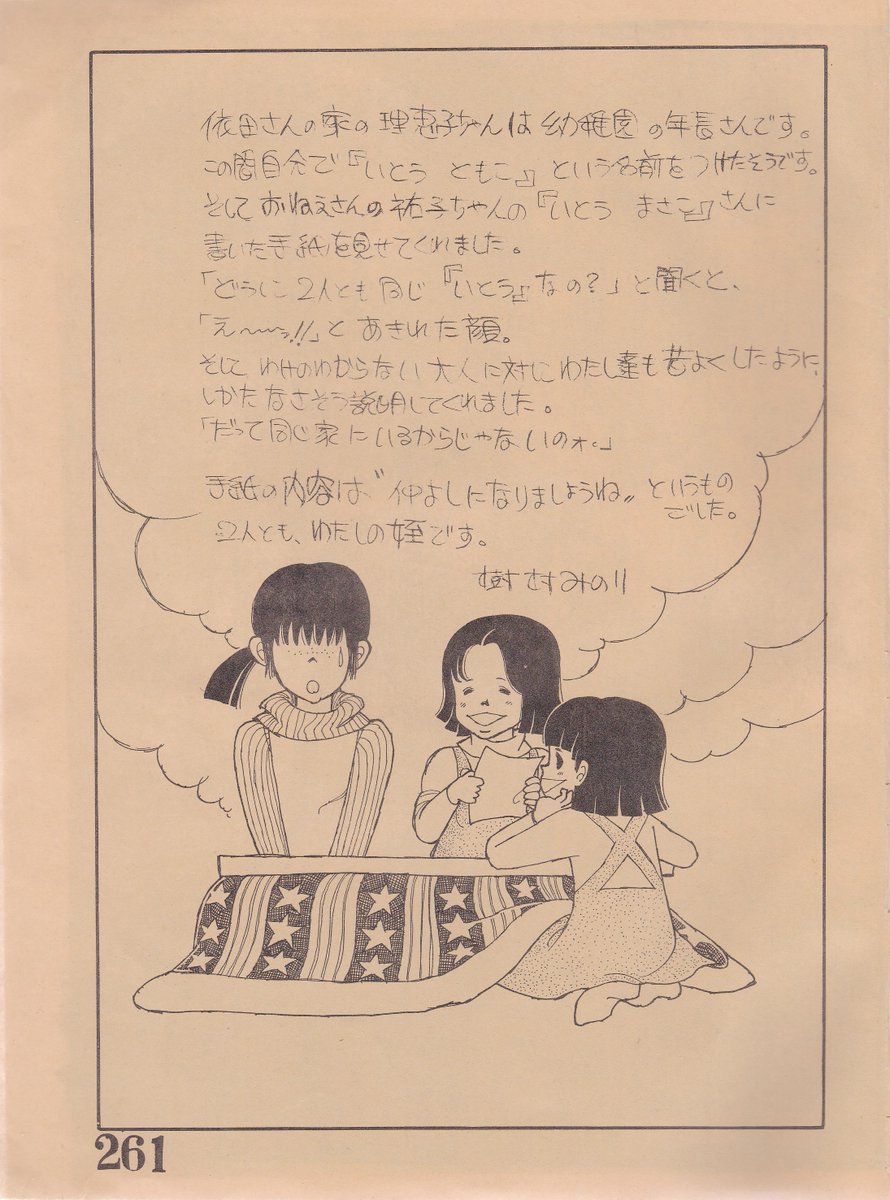 依田さんの家の理恵子ちゃんは幼稚園の年長さんです。
この間自分で『いとう ともこ』という名前をつけたそうです。
そしておねえさんの祐子ちゃんの『いとう まさこ』さんに
書いた手紙を見せてくれました。
「どうして2人とも同じ『いとう』なの?」と聞くと、
「え〜〜っ!!」とあきれた顔。
そして わけのわからない大人に対し わたし達も昔よくしたように、
しかたなさそう説明してくれました。
「だって同じ家にいるからじゃないのォ。」
手紙の内容は、“仲よしになりましょうね〟というもの
でした。
2人とも、わたしの姪です。
樹村みのり
261